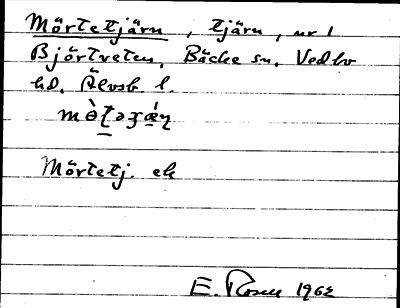 Mörtetjärn, tjärn, nr 1
Björtveten, Bäcke sn, Vedbo
hd, Älvsb. l.
Mörtetj. ek
E. Rosell 1962